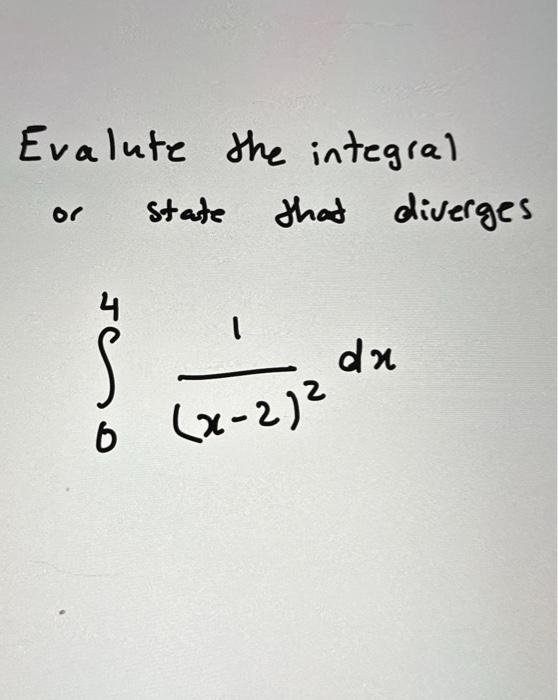 Evalute the integral
or state that diverges
4
∫ 1/(x-2)² dx
0